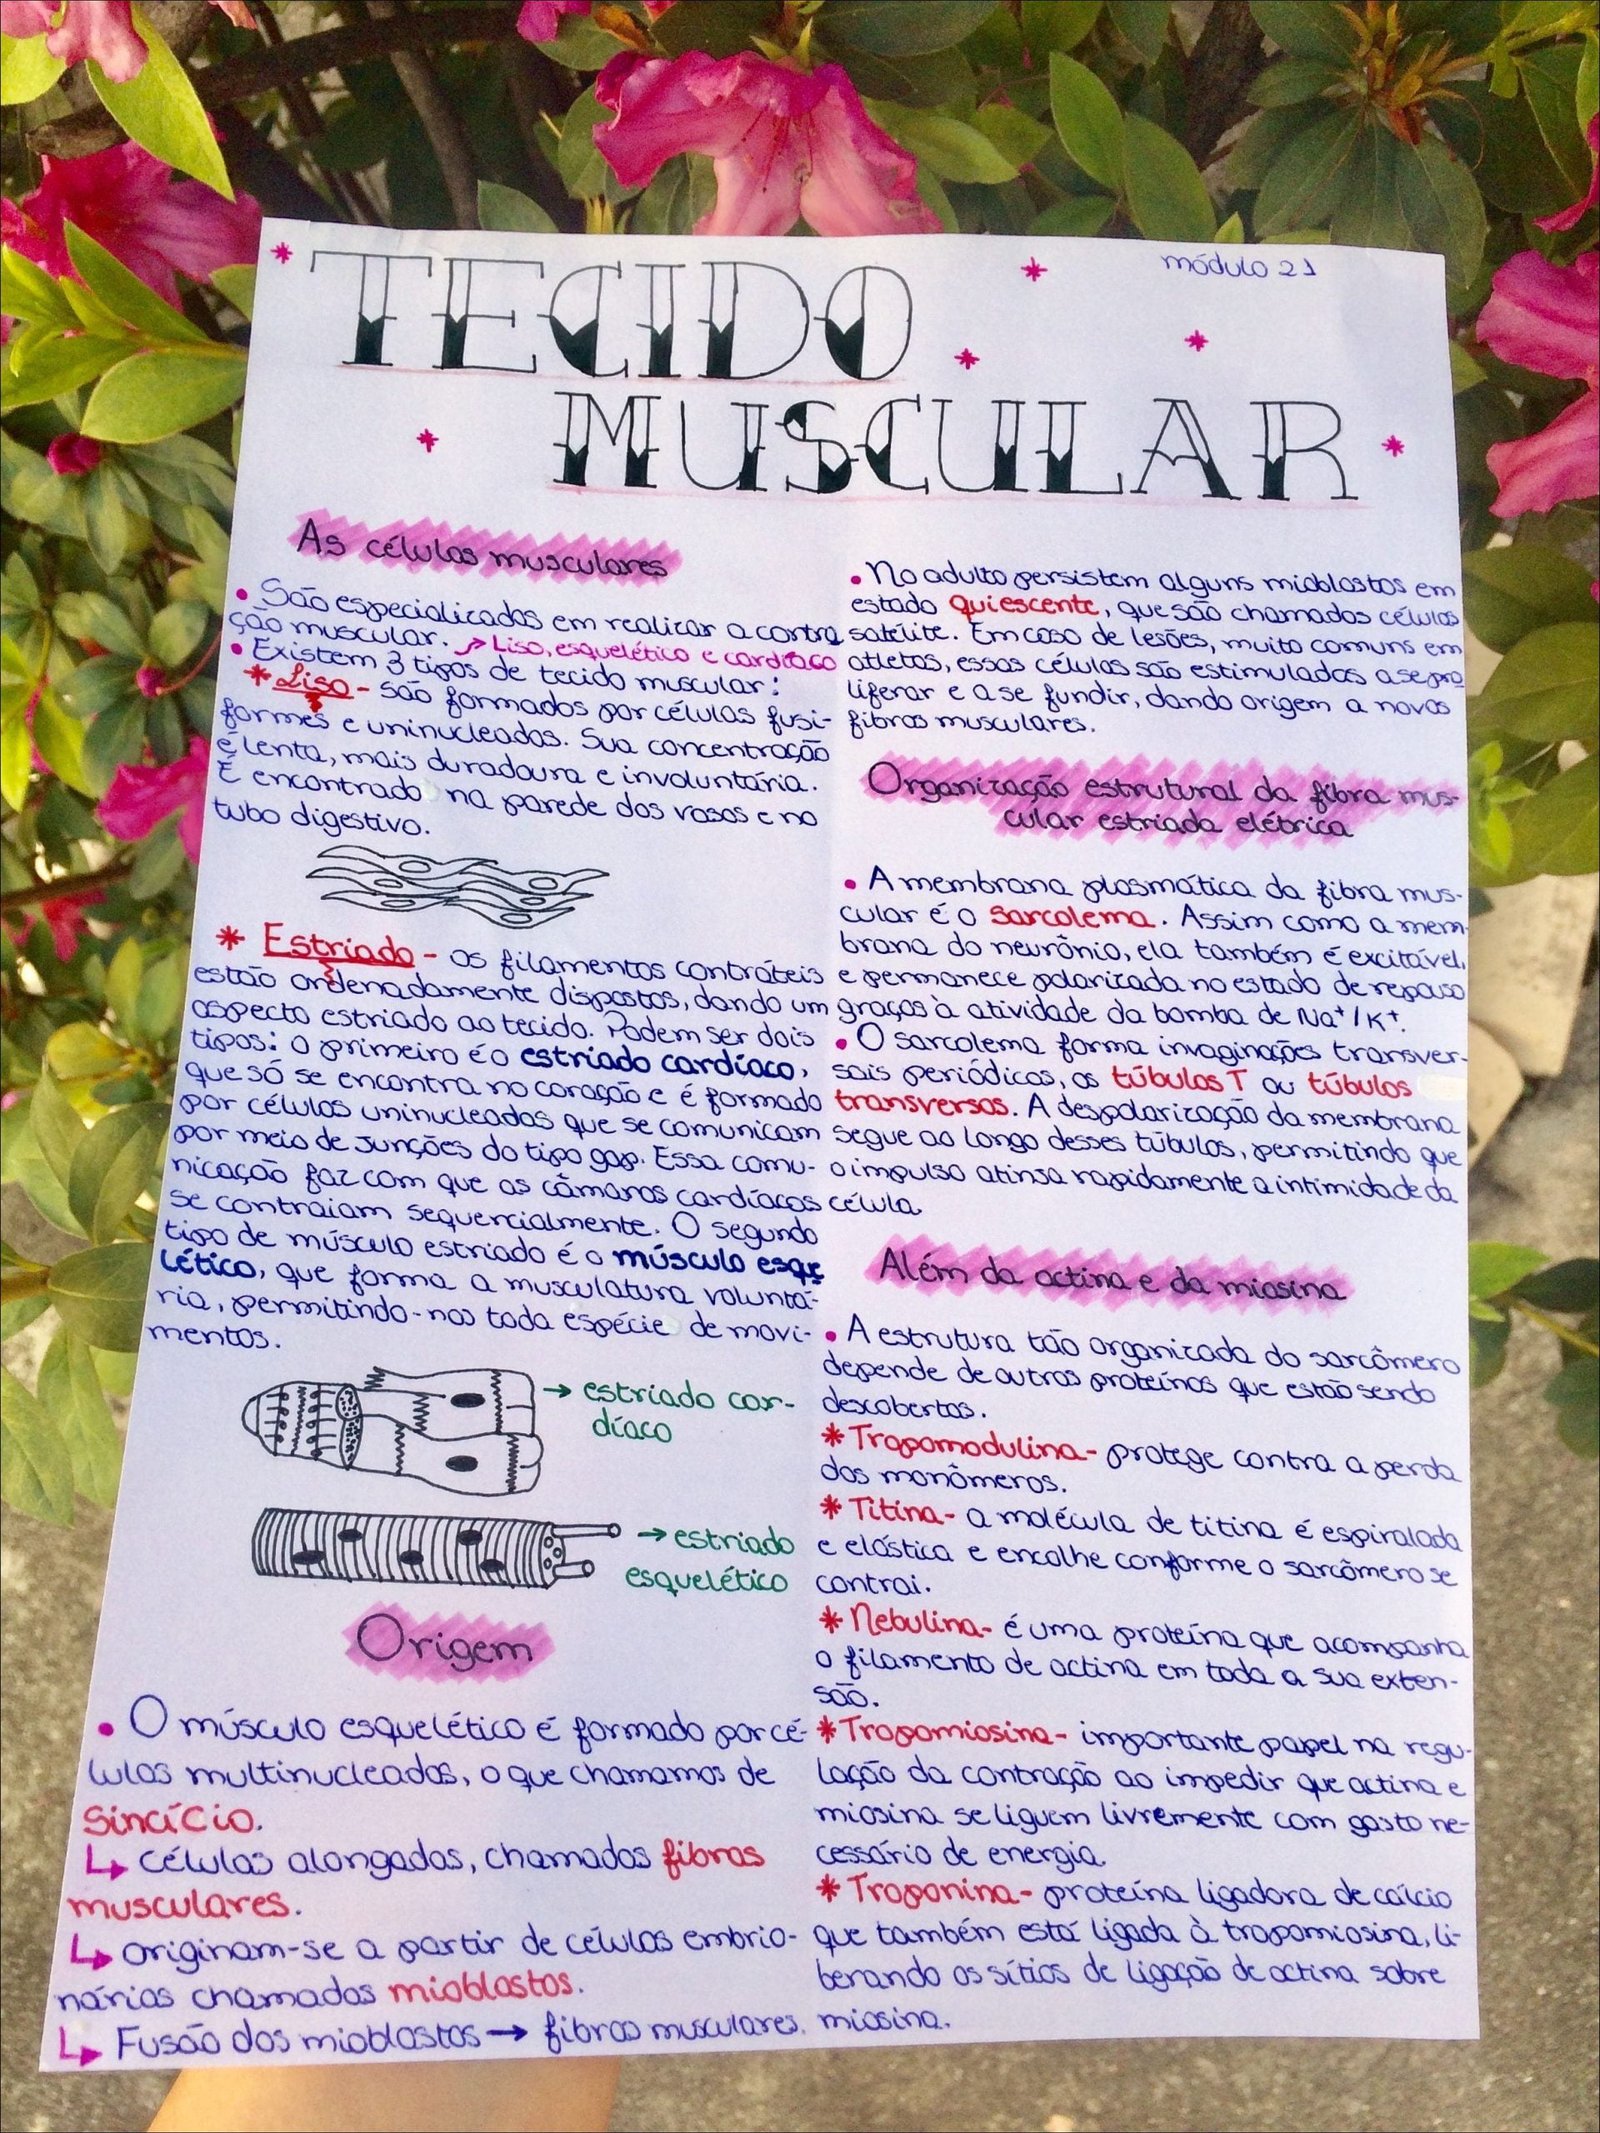 módulo 21
TECIDO
MUSCULAR
As células musculares
• São especializadas em realizar a contra
ção muscular. → Liso, esquelético e cardíaco
• Existem 3 tipos de tecido muscular:
* Liso - São formados por células fusi-
formes e uninucleadas. Sua concentração
é lenta, mais duradoura e involuntária.
É encontrado na parede dos vasos e no
tubo digestivo.
* Estriado - os filamentos contráteis
estão ordenadamente dispostos, dando um
aspecto estriado ao tecido. Podem ser dois
tipos: o primeiro é o estriado cardíaco,
que só se encontra no coração e é formado
por células uninucleadas que se comunicam
por meio de junções do tipo gap. Essa comu-
nicação faz com que as câmaras cardíacas
se contraiam sequencialmente. O segundo
tipo de músculo estriado é o músculo esque
lético, que forma a musculatura voluntá-
ria, permitindo-nos toda espécie de movi-
mentos.
→ estriado car-
díaco
→ estriado
esquelético
Origem
• O músculo esquelético é formado por cé-
lulas multinucleadas, o que chamamos de
sincício.
↳ células alongadas, chamadas fibras
musculares.
↳ originam-se a partir de células embrio-
nárias chamadas mioblastos.
↳ Fusão dos mioblastos → fibras musculares.
• No adulto persistem alguns mioblastos em
estado quiescente, que são chamados células
satélite. Em caso de lesões, muito comuns em
atletas, essas células são estimuladas a se pro
liferar e a se fundir, dando origem a novas
fibras musculares.
Organização estrutural da fibra mus-
cular estriada elétrica
• A membrana plasmática da fibra mus-
cular é o sarcolema. Assim como a mem-
brana do neurônio, ela também é excitável,
e permanece polarizada no estado de repouso
graças à atividade da bomba de Na⁺/K⁺.
• O sarcolema forma invaginações transver-
sais periódicas, os túbulos T ou túbulos
transversos. A despolarização da membrana
segue ao longo desses túbulos, permitindo que
o impulso atinja rapidamente a intimidade da
célula.
Além da actina e da miosina
• A estrutura tão organizada do sarcômero
depende de outras proteínas que estão sendo
descobertas.
* Tropomodulina - protege contra a perda
dos monômeros.
* Titina - a molécula de titina é espiralada
e elástica e encolhe conforme o sarcômero se
contrai.
* Nebulina - é uma proteína que acompanha
o filamento de actina em toda a sua exten-
são.
* Tropomiosina - importante papel na regu-
lação da contração ao impedir que actina e
miosina se liguem livremente com gasto ne-
cessário de energia.
* Troponina - proteína ligadora de cálcio
que também está ligada à tropomiosina, li-
berando os sítios de ligação de actina sobre
miosina.